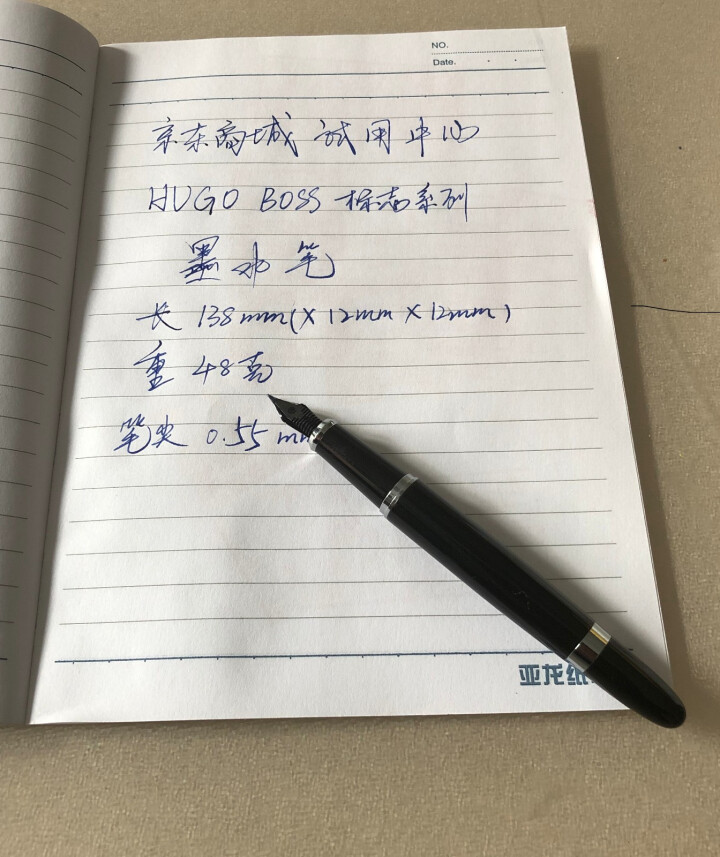 NO.
Date.
京东商城 试用中心
HUGO BOSS 标志系列
墨水笔
长 138mm(X 12mm X 12mm)
重 48克
笔尖 0.55 mm
亚龙纸